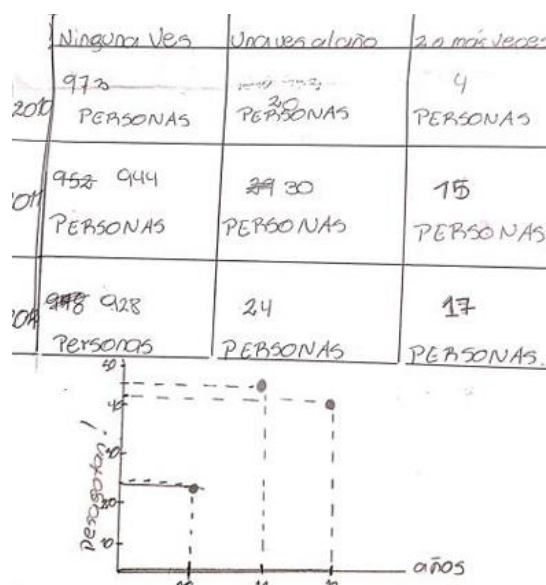 Ninguna Ves Una ves al año 2 o más veces
2010 973 PERSONAS 20 PERSONAS 4 PERSONAS
2011 952 944 PERSONAS 29 30 PERSONAS 15 PERSONAS
928 Personas 24 PERSONAS 17 PERSONAS.
50
45
20
10
años